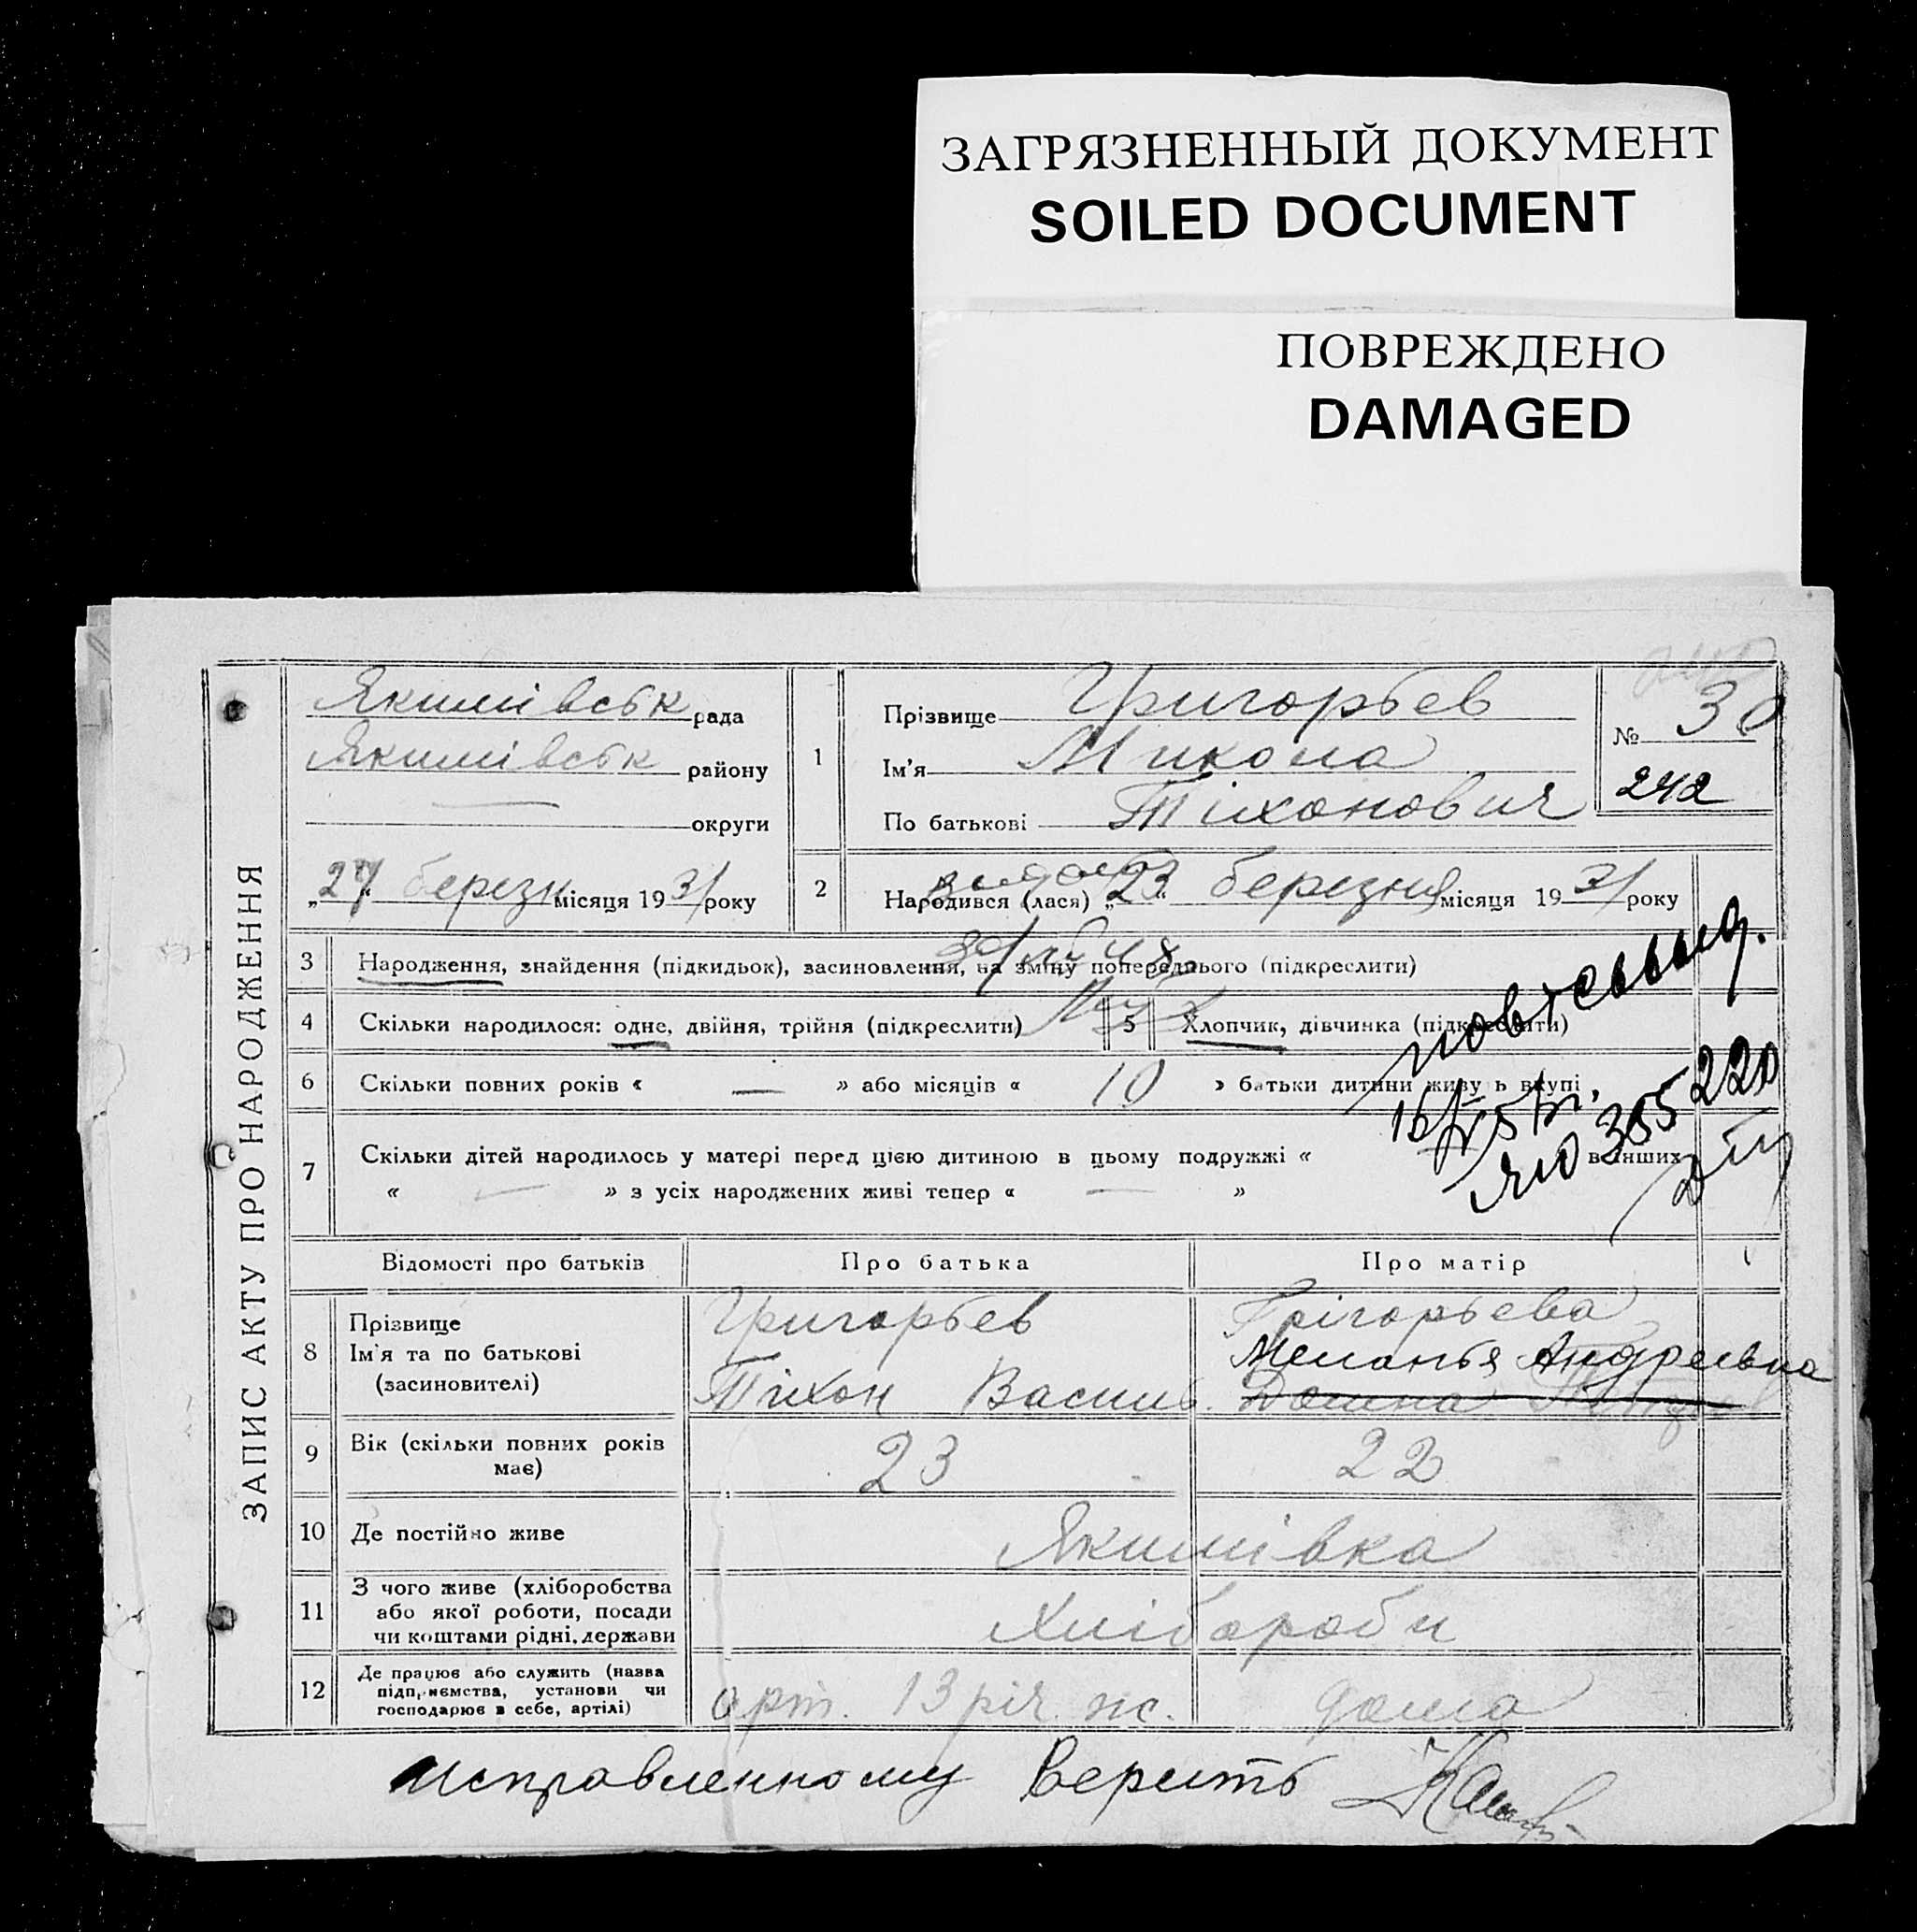 ЗАГРЯЗНЕННЫЙ ДОКУМЕНТ
SOILED DOCUMENT
ПОВРЕЖДЕНО
DAMAGED
ЗАПИС АКТУ ПРО НАРОДЖЕННЯ
Якимівськ рада
Якимівськ району
округи
„27“ березн місяця 1931 року
1
Прізвище Григорьев
Ім'я Микола
По батькові Тіхонович
№ 30
242
2
Народився (лася) „23“ березня місяця 1931 року
3 Народження, знайдення (підкидьок), засиновлення, на зміну попереднього (підкреслити)
4 Скільки народилося: одне, двійня, трійня (підкреслити) 5 Хлопчик, дівчинка (підкреслити)
6 Скільки повних років « — » або місяців « 10 » батьки дитини живу ь вкупі
7 Скільки дітей народилось у матері перед цією дитиною в цьому подружжі « в інших
« — » з усіх народжених живі тепер « — »
220
355
Відомості про батьків Про батька Про матір
8 Прізвище
Ім'я та по батькові
(засиновителі)
Григорьев
Тіхон Васил.
Грігорьева
Меланья Андреевна
9 Вік (скільки повних років має) 23 22
10 Де постійно живе Якимівка
11 З чого живе (хліборобства
або якої роботи, посади
чи коштами рідні, держави
Хлібороби
12 Де працює або служить (назва
підприємства, установи чи
господарює в себе, артілі)
арт. 13 річ. дома
Исправленному верить